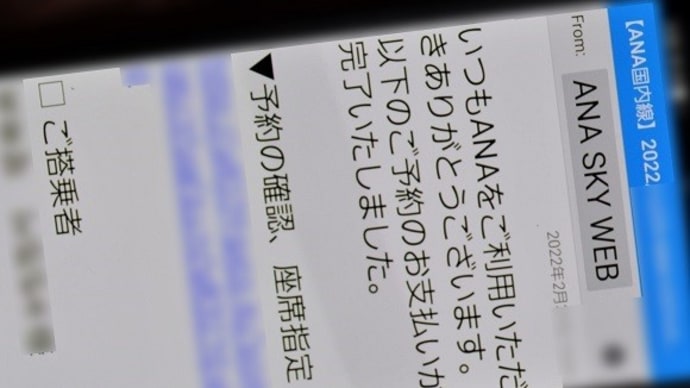 【ANA国内線】2022
From: ANA SKY WEB
2022年2月
いつもANAをご利用いただ
きありがとうございます。
以下のご予約のお支払いが
完了いたしました。
▼予約の確認、座席指定
□ご搭乗者